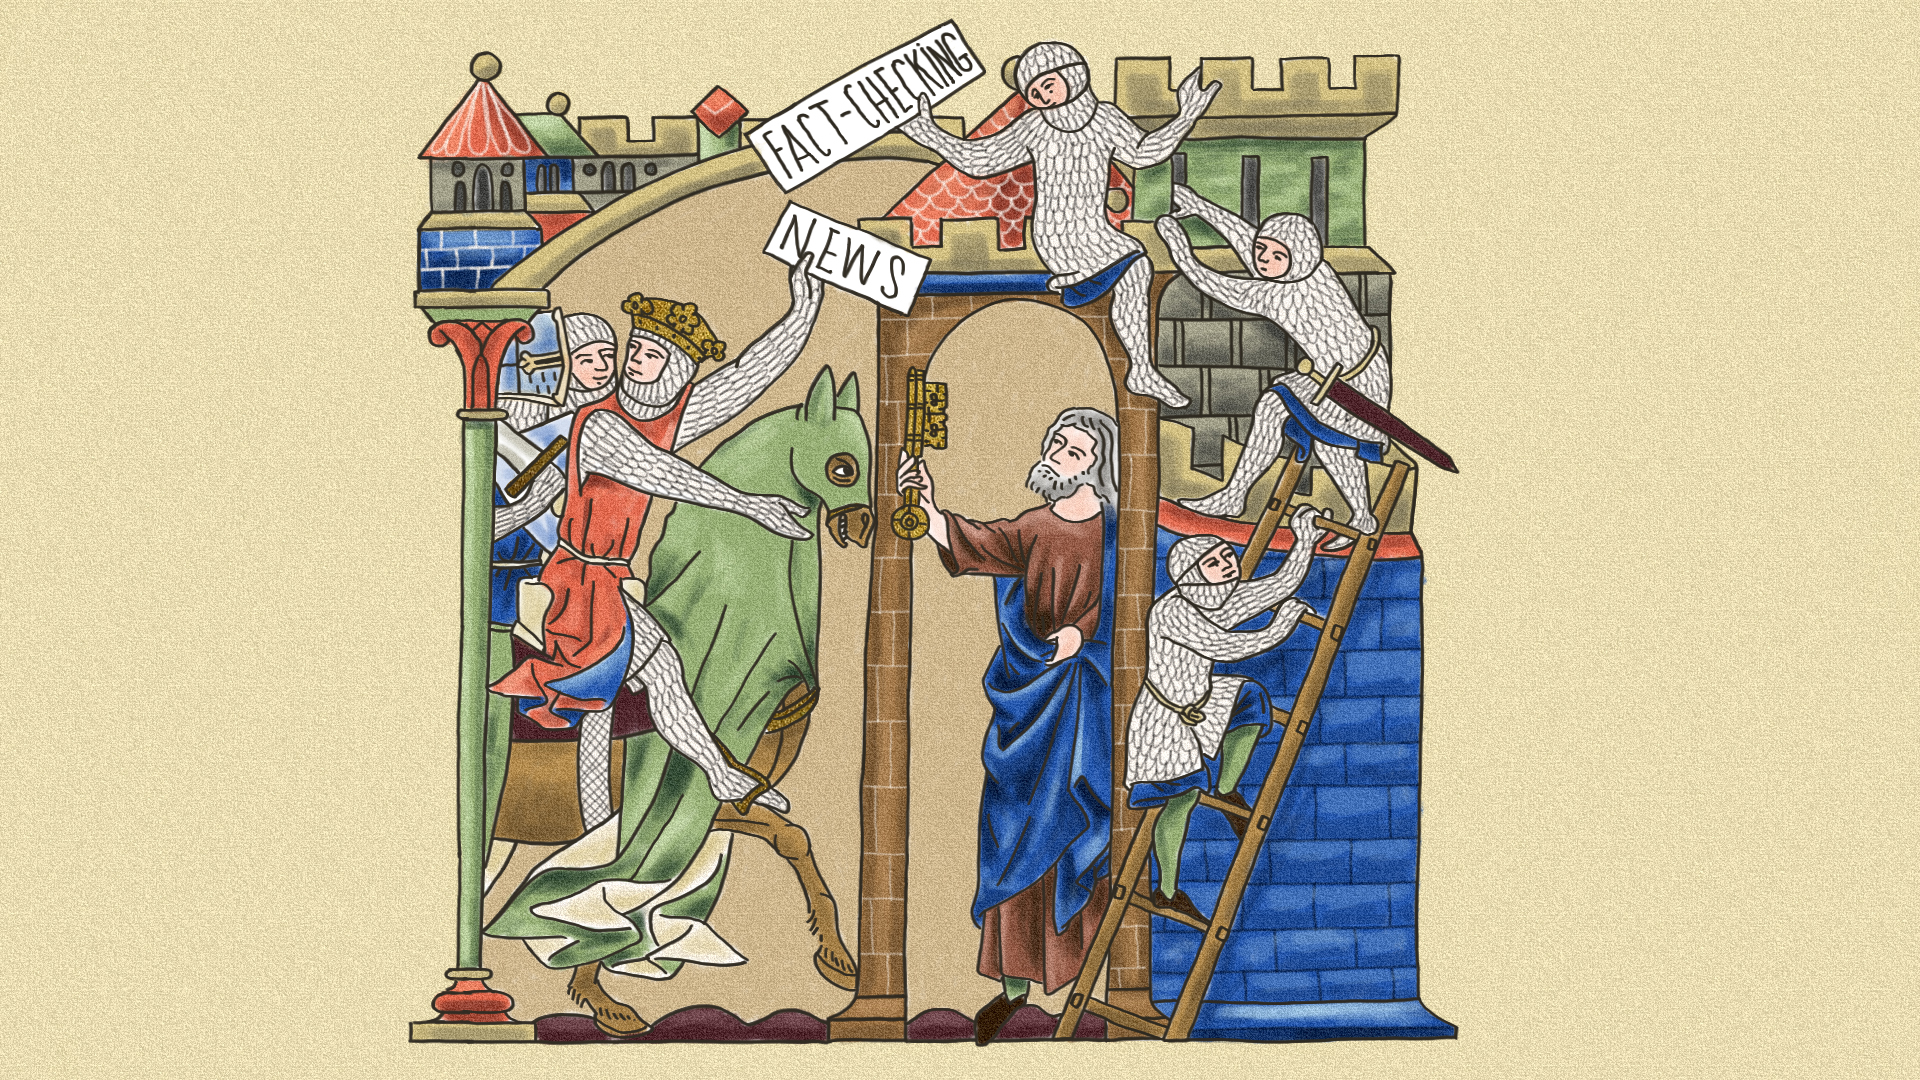 FACT-CHECKING
NEWS